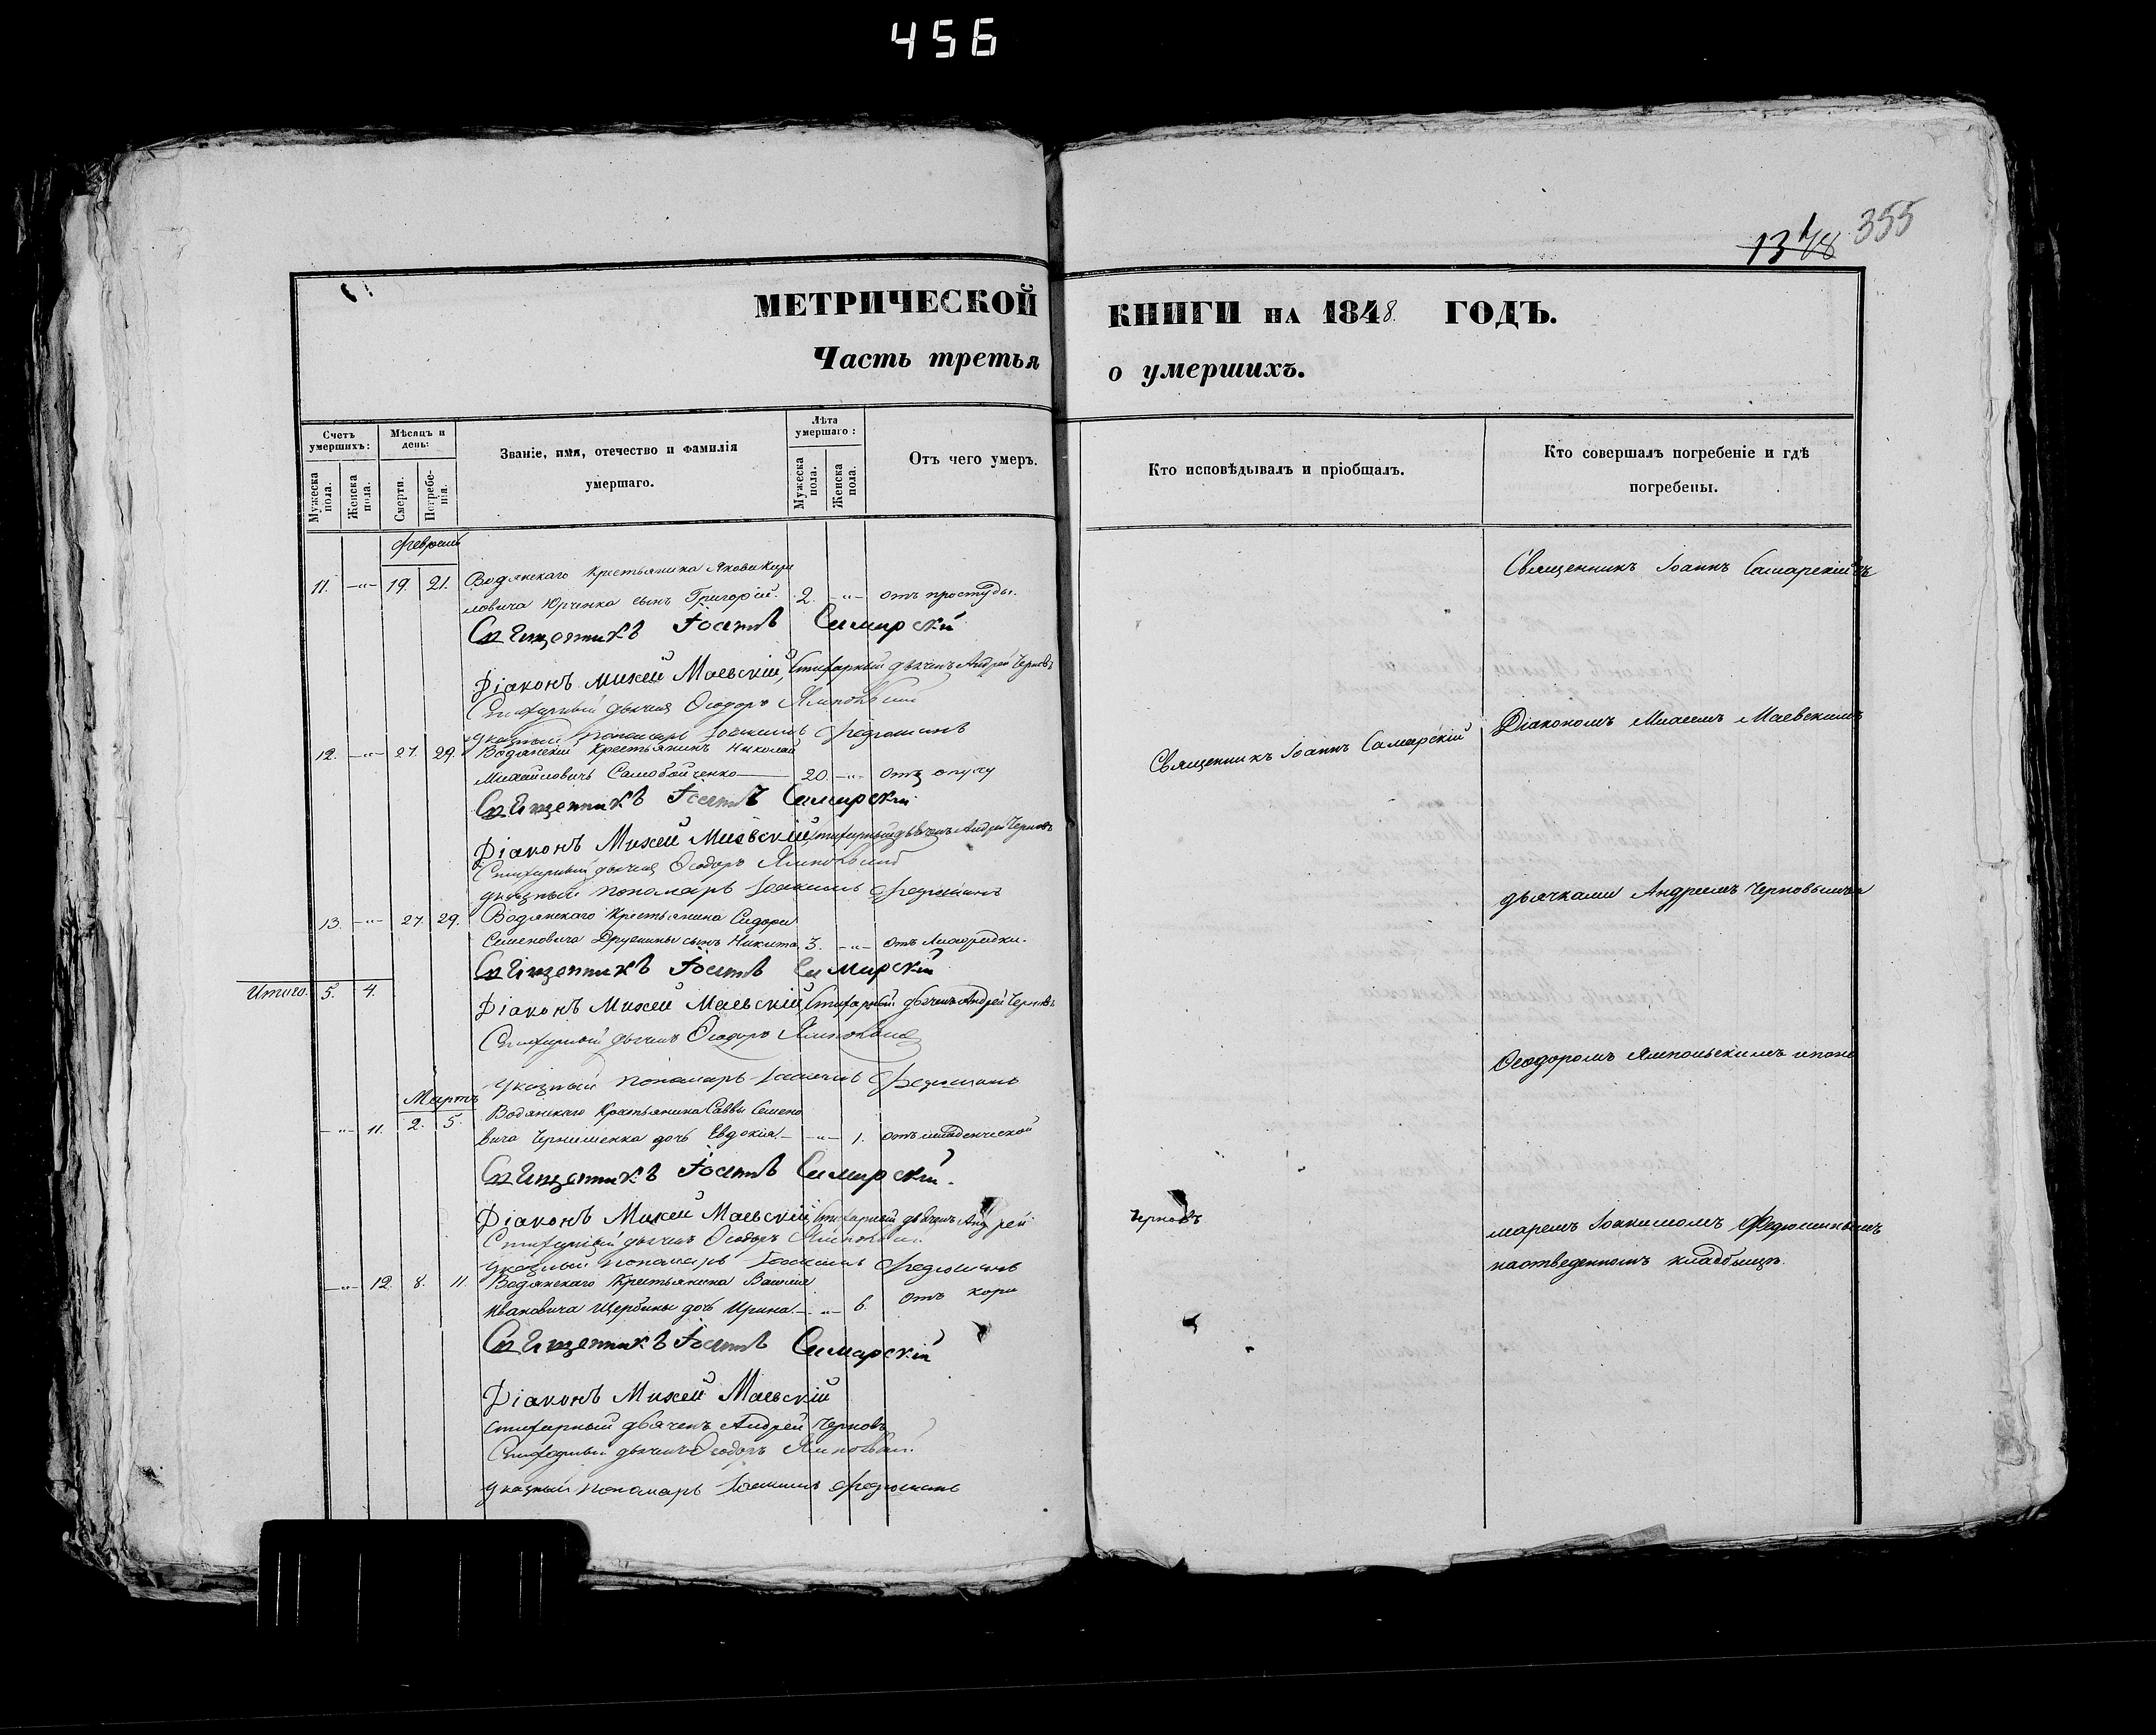 456
1348 355
МЕТРИЧЕСКОЙ КНИГИ НА 1848. ГОДЪ.
Часть третья о умершихъ.
Счетъ умершихъ:
Мужеска пола.
Женска пола.
Мѣсяцъ и день:
Смерти.
Погребенія.
Званіе, имя, отечество и фамилія умершаго.
Лѣта умершаго:
Мужеска пола.
Женска пола.
Отъ чего умеръ.
Кто исповѣдывалъ и пріобщалъ.
Кто совершалъ погребеніе и гдѣ погребены.
Февраль
11. -"- 19. 21. Водянскаго Крестьянина Якова Кири
ловича Юрченка сынъ Григорій. 2. -"- отъ простуды.
Священникъ Іоаннъ Самарскій съ
Священникъ Іоаннъ Самарскій
Діаконъ Михей Маевскій, Стихарный дьячекъ Андрей Черновъ
Стихарный дьячекъ Ѳеодоръ Ямпольскій
Указный пономарь Іоакимъ Федюшинъ
12. -"- 27. 29. Водянскій Крестьянинъ Николай
Михайловичъ Самобойченко 20. -"- отъ опуху
Священникъ Іоаннъ Самарскій
Діакономъ Михеемъ Маевскимъ
Священникъ Іоаннъ Самарскій
Діаконъ Михей Маевскій, Стихарный дьячекъ Андрей Черновъ
Стихарный дьячекъ Ѳеодоръ Ямпольскій
Указный пономарь Іоакимъ Федюшинъ
дьячками Андреемъ Черновымъ и
13. -"- 27. 29. Водянскаго Крестьянина Сидора
Семеновича сынъ Никита 3. -"- отъ Лихорадки.
Священникъ Іоаннъ Самарскій
Итого. 5. 4.
Діаконъ Михей Маевскій, Стихарный дьячекъ Андрей Черновъ
Стихарный дьячекъ Ѳеодоръ Ямпольскій
Ѳеодоромъ Ямпольскимъ и поно
Указный пономарь Іоакимъ Федюшинъ
Мартъ
-"- 11. 2. 5. Водянскаго Крестьянина Саввы Семено
вича дочь Евдокія. -"- 1. отъ младенческой
Священникъ Іоаннъ Самарскій.
Діаконъ Михей Маевскій, Стихарный дьячекъ Андрей Черновъ
Стихарный дьячекъ Ѳеодоръ Ямпольскій
Указный пономарь Іоакимъ Федюшинъ
маремъ Іоакимомъ Федюшинымъ
на отведенномъ кладбищѣ.
-"- 12. 8. 11. Водянскаго Крестьянина Василія
Ивановича Щербины дочь Ирина. -"- 6. отъ кори
Священникъ Іоаннъ Самарскій
Діаконъ Михей Маевскій
Стихарный дьячекъ Андрей Черновъ
Стихарный дьячекъ Ѳеодоръ Ямпольскій
Указный пономарь Іоакимъ Федюшинъ